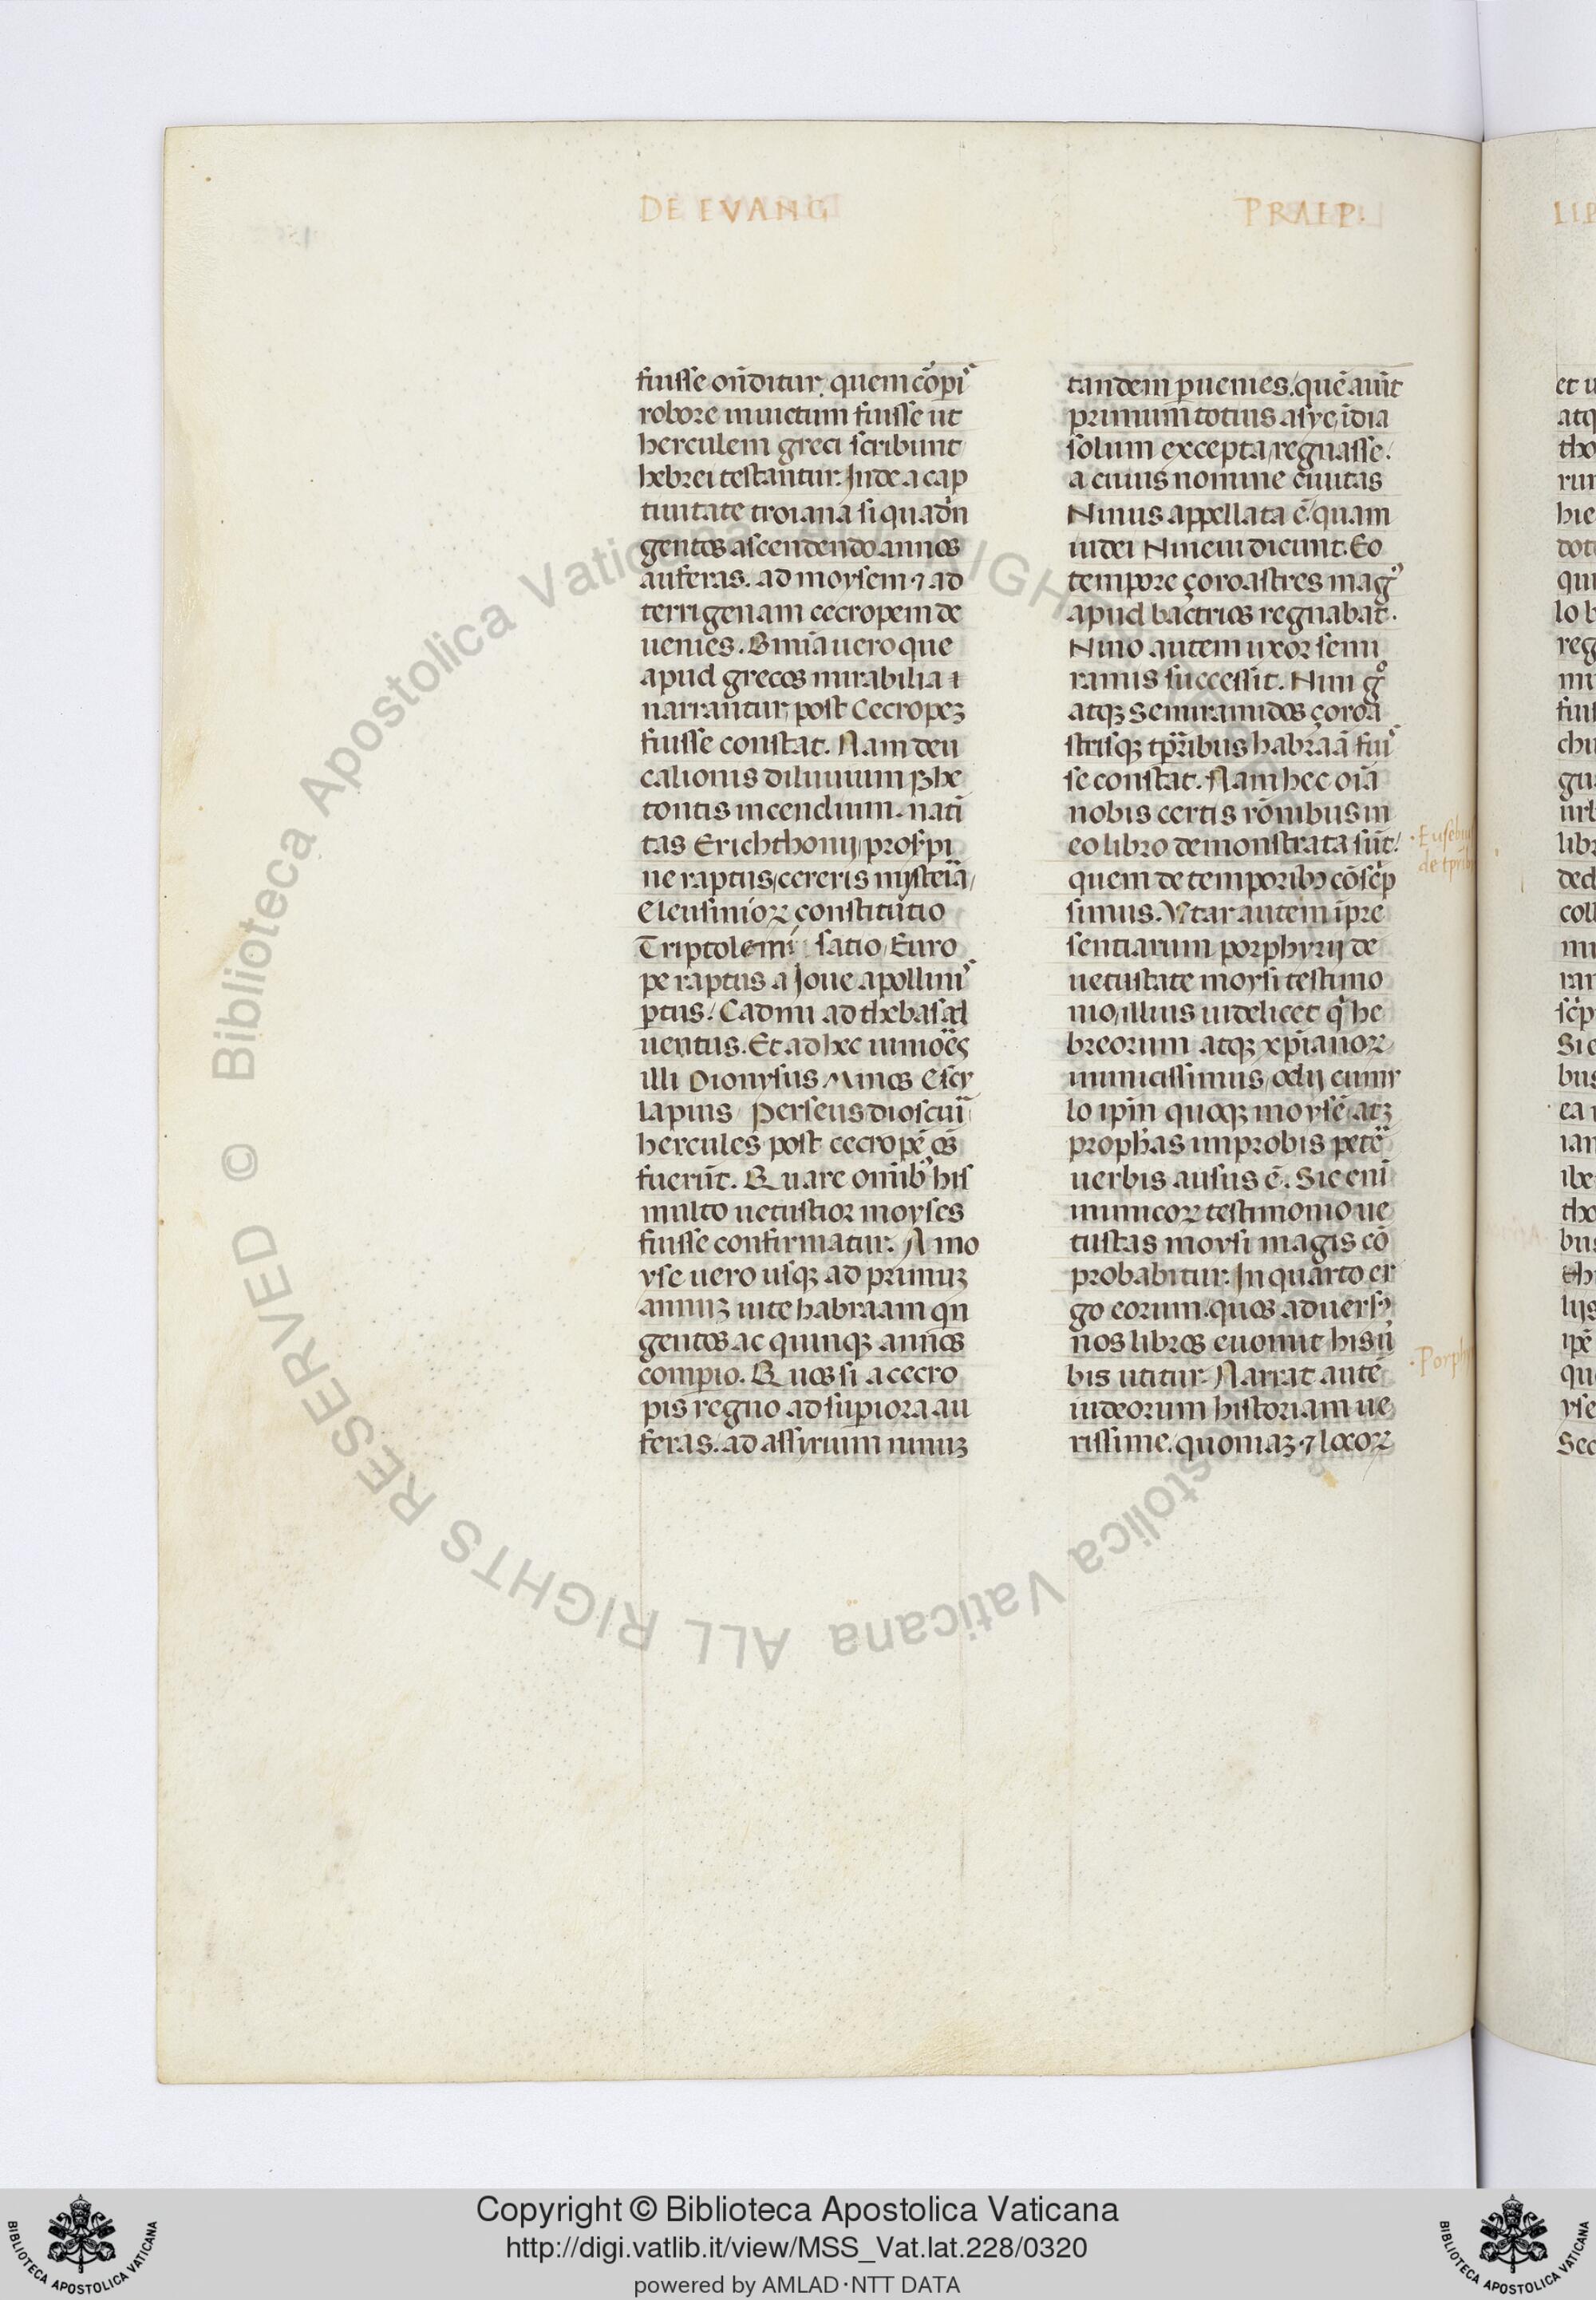 DE EVANG
PRAEP.
fuisse oñditur. quem cōpis
robore inuictum fuisse ut
herculem greci scribunt
hebrei testantur. Inde a cap
tiuitate troiana si quadrin
gentos ascendendo annos
auferas. ad moysem ⁊ ad
terrigenam cecropem de
uenies. Omīa uero que
apud grecos mirabilia
narrantur, post Cecropeꝫ
fuisse constat. Nam deu
calionis diluuium phe
tontis incendium. nati
tas Erichthonij, proserpi
ne raptus, cereris misteīa,
Eleusinioꝝ constitutio
Triptolemi satio, Euro
pe raptus a Joue apollinis
ptus. Cadmi ad thebas ad
uentus. Et ad hec iunioēs
illi Dionysus Minos Escy
lapius Perseus dioscuri
hercules post cecropē oēs
fuerūt. Quare omībꝰ his
multo uetustior moyses
fuisse confirmatur. A mo
yse uero usqꝫ ad primuꝫ
annuꝫ uite habraam qn
gentos ac quinqꝫ annos
comperio. Quos si a cecro
pis regno ad superiora au
feras. ad assyrium ninuꝫ
tandem peruenies. quē aiūt
primum totius asye, īdia
solum excepta, regnasse.
a cuius nomine ciuitas
Ninus appellata ē, quam
iudei Niniui dicunt. Eo
tempore çoroastres magꝰ
apud bactrios regnabat.
Nino autem uxor semi
ramis successit. Nini gͦ
atqꝫ Semiramidos çoroa
strisqꝫ tp̄ribus habraā fuis
se constat. Nam hec oīa
nobis certis rōnibus in
eo libro demonstrata sūt.
quem de temporibꝰ cōscrip
simus. Vtar autem ī pre
sentiarum porphyrij de
uetustate moysi testimo
nio, illius uidelicet qui he
breorum atqꝫ xp̄ianoꝝ
inimicissimus, odij cumu
lo ip̄m quoqꝫ moysē atqꝫ
proph̄as improbis petere
uerbis ausus ē. Sic enī
inimicoꝝ testimonio ue
tustas moysi magis cō
probabitur. In quarto er
go eorum. quos aduersꝰ
nos libros euomit his uer
bis utitur. Narrat autē
iudeorum historiam ue
rissime. quoniaꝫ ⁊ locoꝝ
Eusebius
de tp̄ribꝰ
Copyright © Biblioteca Apostolica Vaticana
http://digi.vatlib.it/view/MSS_Vat.lat.228/0320
powered by AMLAD·NTT DATA
BIBLIOTECA APOSTOLICA VATICANA
BIBLIOTECA APOSTOLICA VATICANA
© Biblioteca Apostolica Vaticana ALL RIGHTS RESERVED